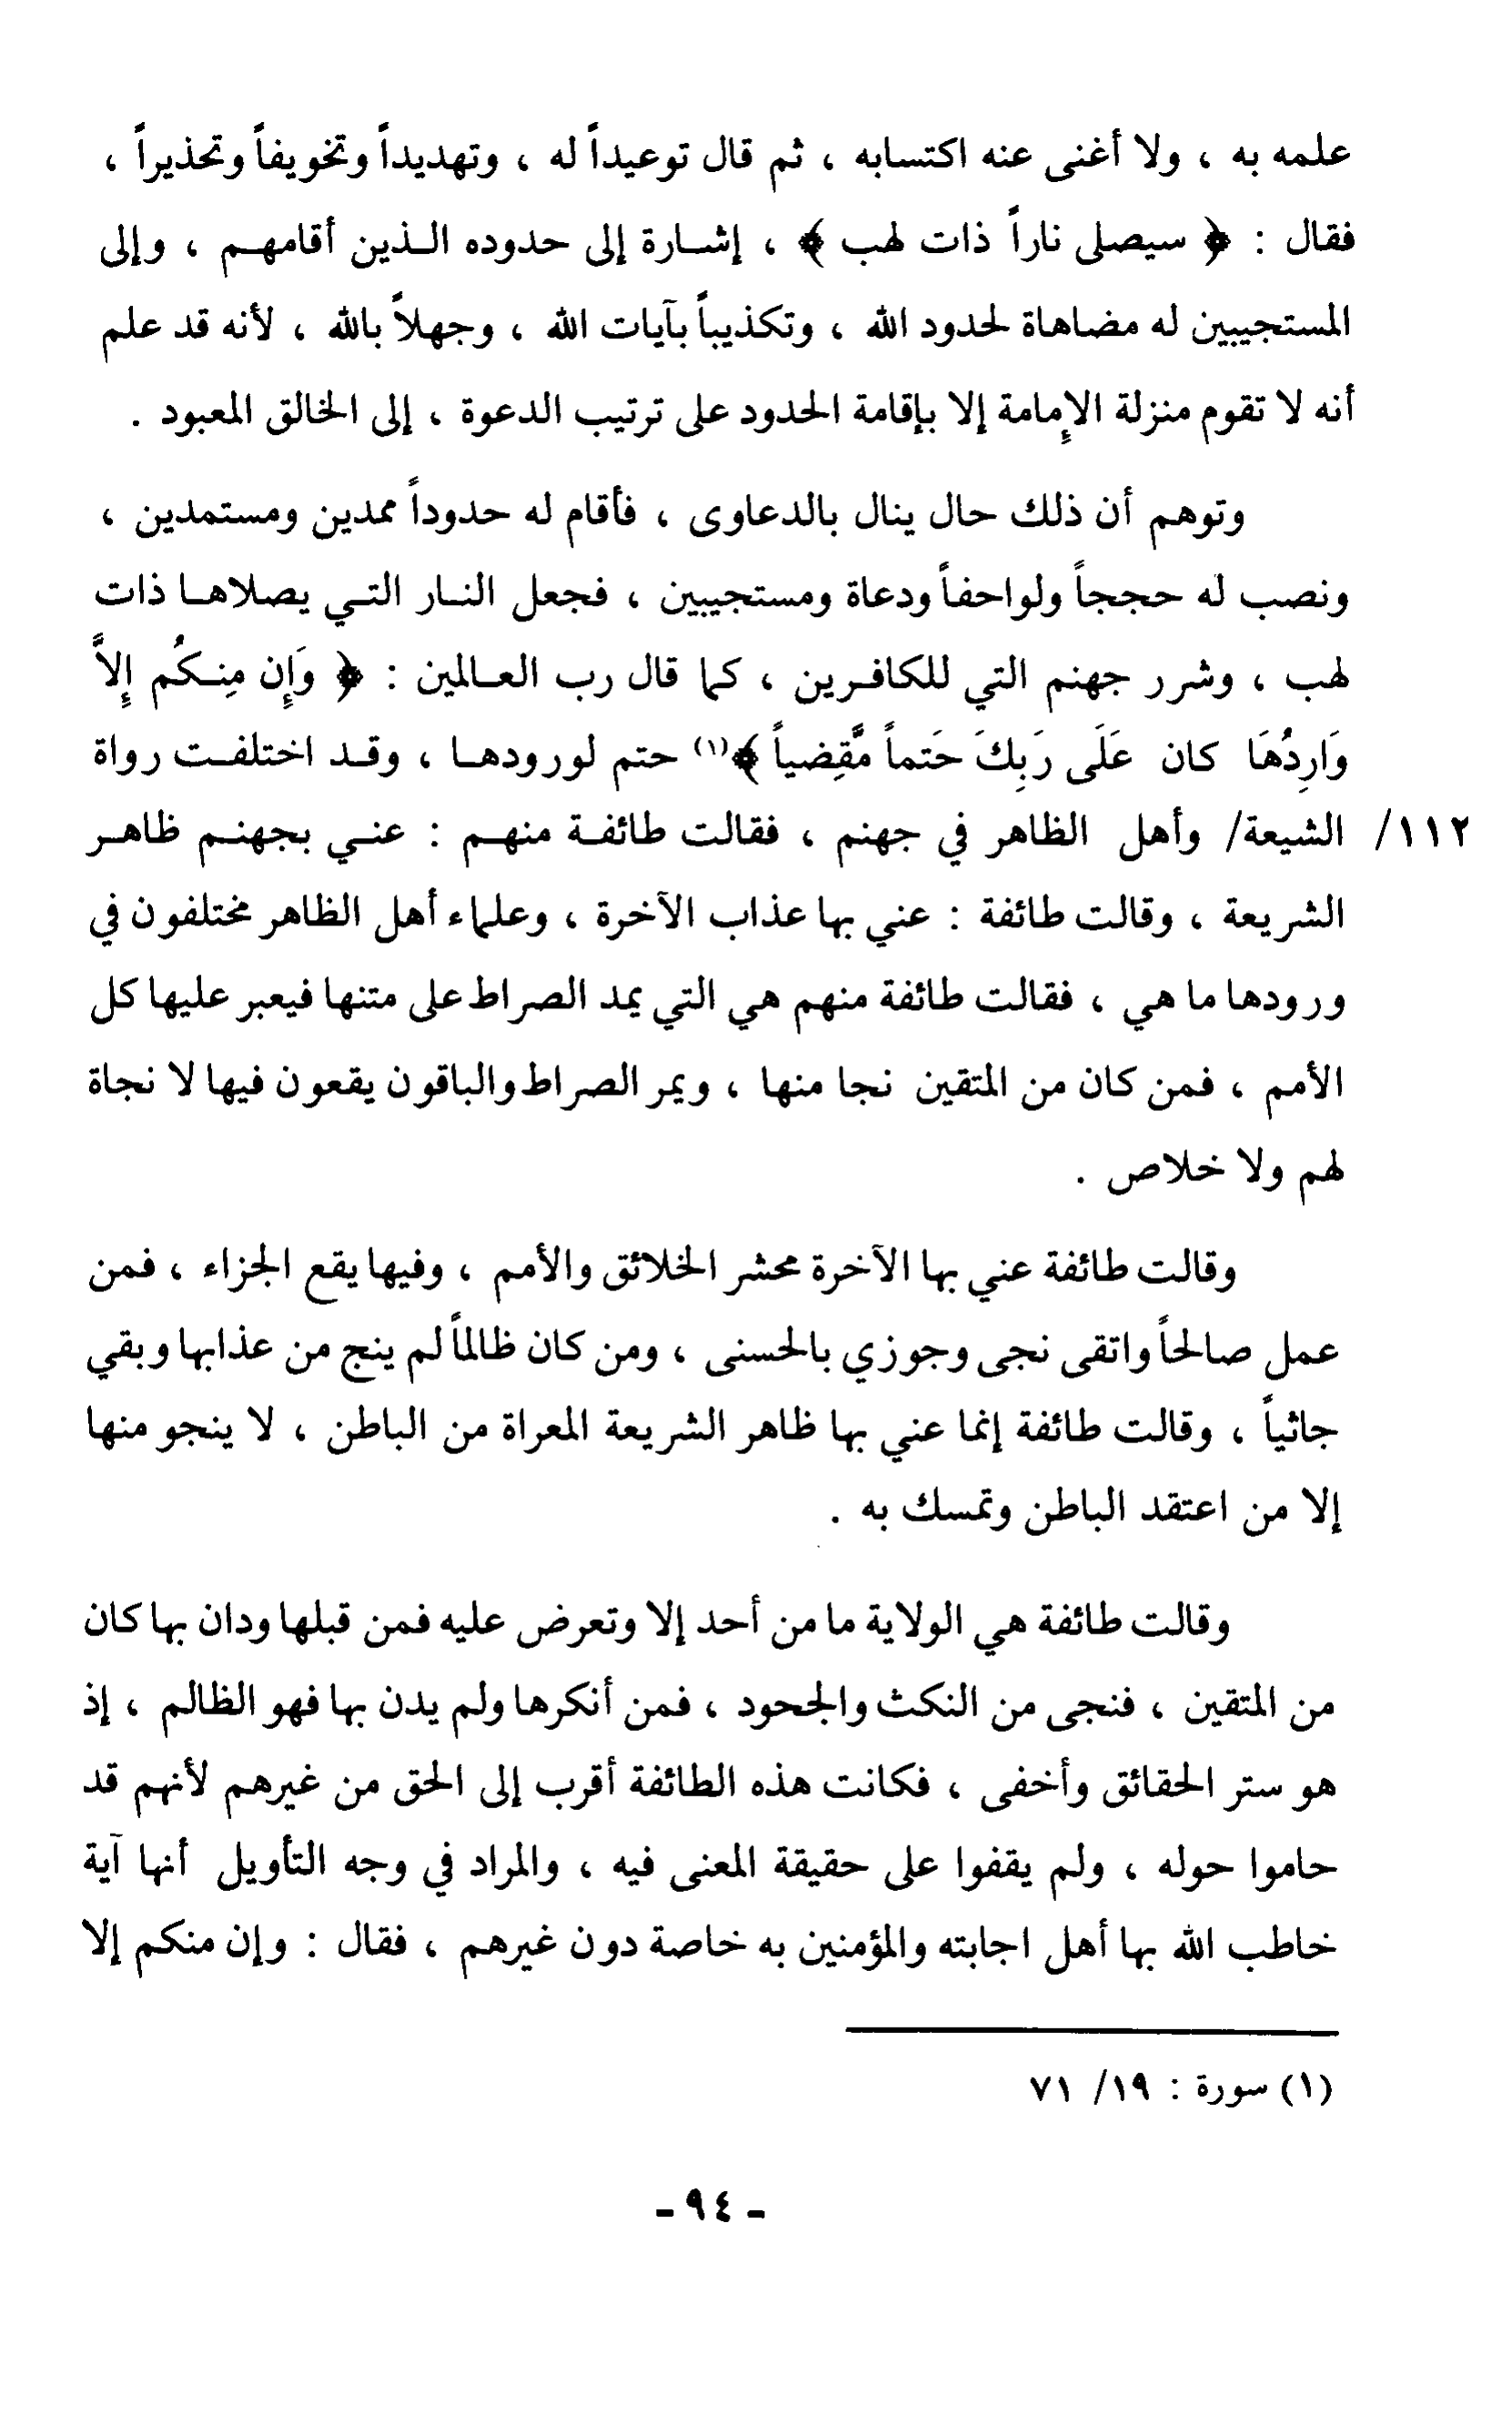 علمه به ، ولا أغنى عنه اكتسابه ، ثم قال توعيداً له ، وتهديداً وتخويفاً وتحذيراً ،
فقال : ﴿ سيصلى ناراً ذات لهب ﴾ ، إشـارة إلى حدوده الـذين أقامهـم ، وإلى
المستجيبين له مضاهاة لحدود الله ، وتكذيباً بآيات الله ، وجهلاً بالله ، لأنه قد علم
أنه لا تقوم منزلة الإمامة إلا بإقامة الحدود على ترتيب الدعوة ، إلى الخالق المعبود .
وتوهم أن ذلك حال ينال بالدعاوى ، فأقام له حدوداً ممدين ومستمدين ،
ونصب له حججاً ولواحفاً ودعاة ومستجيبين ، فجعل النـار التـي يصلاهـا ذات
لهب ، وشرر جهنم التي للكافـرين ، كما قال رب العـالمين : ﴿ وَإِن مِنـكُم إِلاَّ
وَارِدُهَا كان عَلَى رَبِكَ حَتماً مَّقضِياً ﴾(١) حتم لورودهـا ، وقـد اختلفـت رواة
١١٢/ الشيعة/ وأهل الظاهر في جهنم ، فقالت طائفـة منهـم : عنـي بجهنـم ظاهـر
الشريعة ، وقالت طائفة : عني بها عذاب الآخرة ، وعلماء أهل الظاهر مختلفون في
ورودها ما هي ، فقالت طائفة منهم هي التي يمد الصراط على متنها فيعبر عليها كل
الأمم ، فمن كان من المتقين نجا منها ، ويمر الصراط والباقون يقعون فيها لا نجاة
لهم ولا خلاص .
وقالت طائفة عني بها الآخرة محشر الخلائق والأمم ، وفيها يقع الجزاء ، فمن
عمل صالحاً واتقى نجى وجوزي بالحسنى ، ومن كان ظالماً لم ينج من عذابها وبقي
جاثياً ، وقالت طائفة إنما عني بها ظاهر الشريعة المعراة من الباطن ، لا ينجو منها
إلا من اعتقد الباطن وتمسك به .
وقالت طائفة هي الولاية ما من أحد إلا وتعرض عليه فمن قبلها ودان بها كان
من المتقين ، فنجى من النكث والجحود ، فمن أنكرها ولم يدن بها فهو الظالم ، إذ
هو ستر الحقائق وأخفى ، فكانت هذه الطائفة أقرب إلى الحق من غيرهم لأنهم قد
حاموا حوله ، ولم يقفوا على حقيقة المعنى فيه ، والمراد في وجه التأويل أنها آية
خاطب الله بها أهل اجابته والمؤمنين به خاصة دون غيرهم ، فقال : وإن منكم إلا
(١) سورة : ١٩/ ٧١
- ٩٤ -